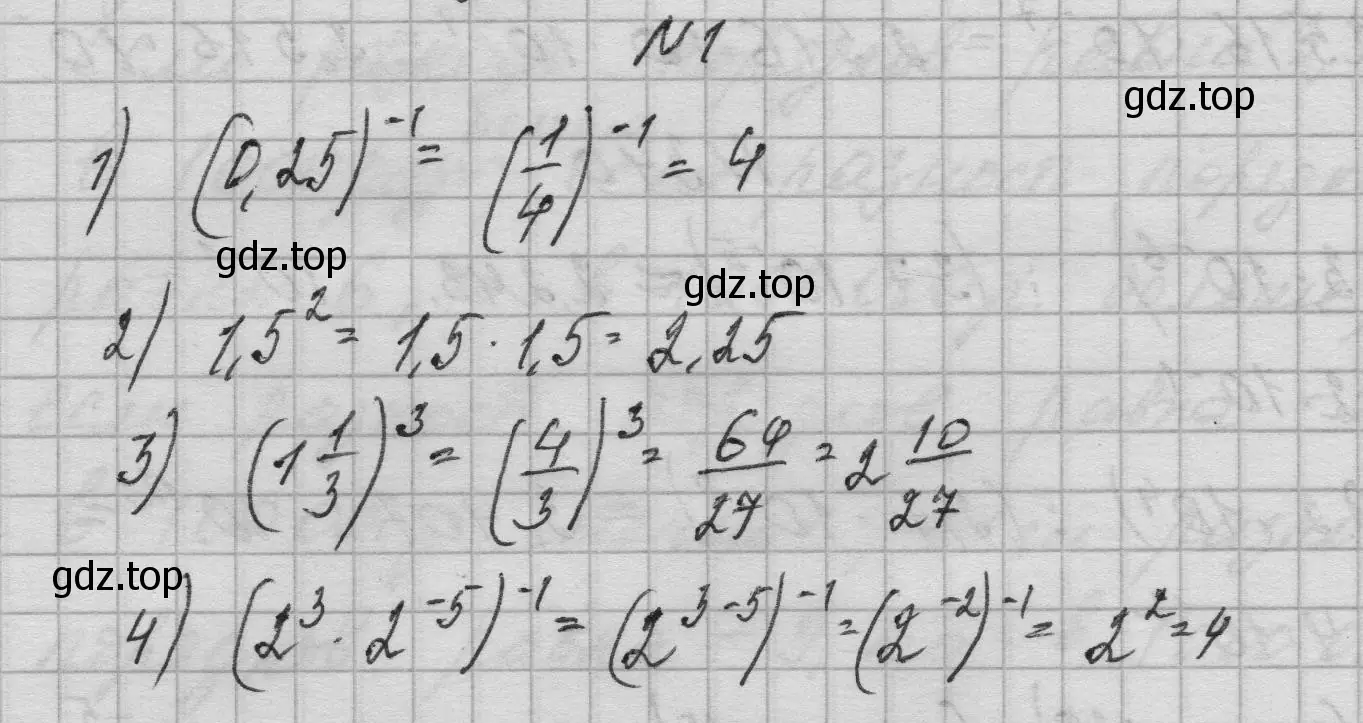 N1
gdz.top
1) (0,25)^{-1} = (1/4)^{-1} = 4
gdz.top
gdz.top
2) 1,5^2 = 1,5 · 1,5 = 2,25
3) (1 1/3)^3 = (4/3)^3 = 64/27 = 2 10/27
gdz.top
4) (2^3 · 2^{-5})^{-1} = (2^{3-5})^{-1} = (2^{-2})^{-1} = 2^2 = 4